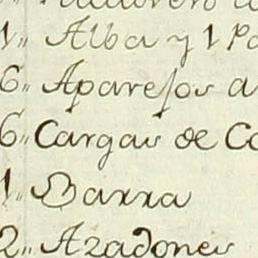 1,, Alba y 1 Pa
6,, Aparejos a
6,, Cargas de Ca
1,, Barra
2,, Azadones